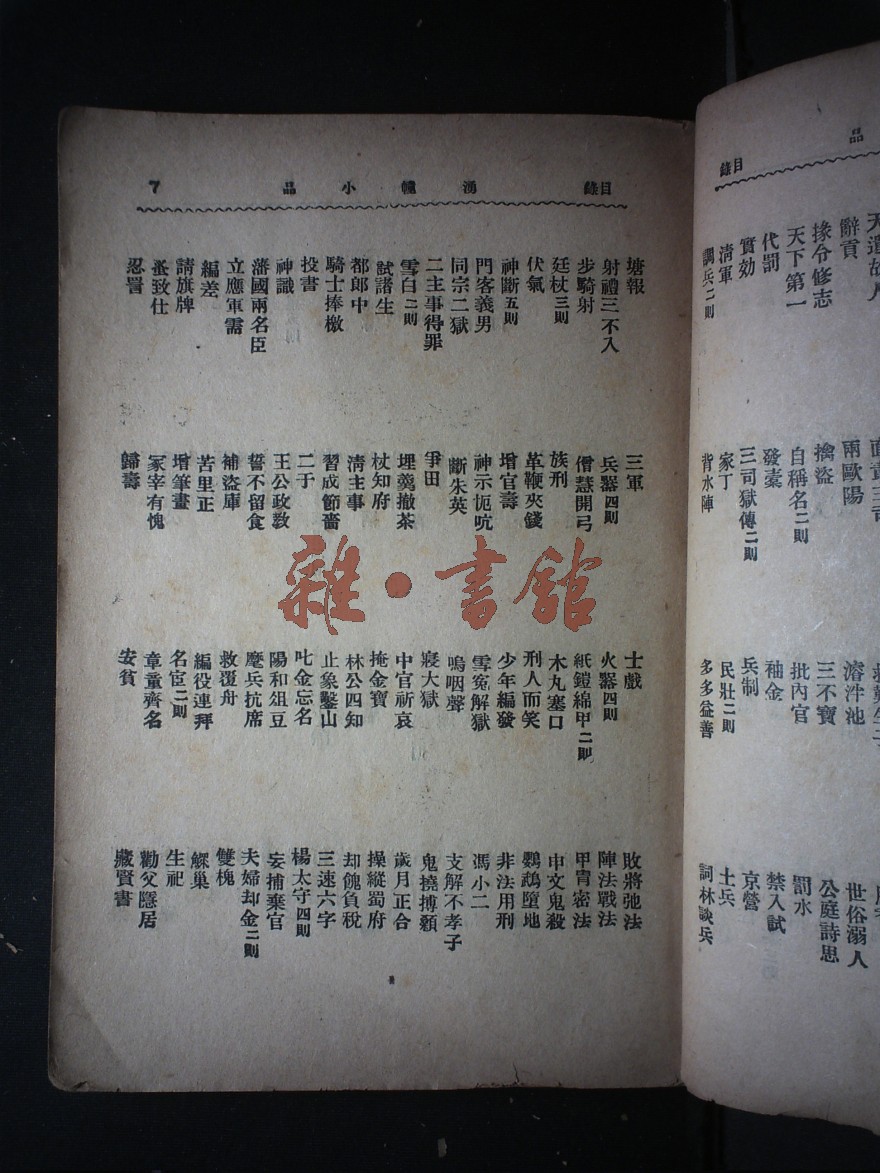 目錄 品
天遣故人
辭貢 兩歐陽 濬泮池 世俗溺人
掾令修志 擒盜 三不寶 公庭詩思
天下第一 自稱名二則 批內官 罰水
代罰 發橐 袖金 禁入試
實効 三司獄傳二則 兵制 京營
清軍 家丁 民壯二則 土兵
調兵二則 背水陣 多多益善 詞林談兵
目錄 湧幢小品 7
塘報 三軍 士戲 敗將弛法
射禮三不入 兵器四則 火器四則 陣法戰法
步騎射 僧慧開弓 紙鎧綿甲二則 甲冑密法
廷杖三則 族刑 木丸塞口 申文鬼殺
伏氣 革鞭夾錢 刑人而笑 鸚鵡墮地
神斷五則 增官壽 少年編發 非法用刑
門客義男 神示扼吭 雪冤解獄 馮小二
同宗二獄 斷朱英 嗚咽聲 支解不孝子
二主事得罪 爭田 寢大獄 鬼撓搏顙
雪白二則 埋羹撤茶 中官祈哀 歲月正合
試諸生 杖知府 掩金寶 操縱蜀府
都郎中 清主事 林公四知 却餽負稅
騎士捧檄 習成節嗇 止象鑿山 三速六字
投書 二于 叱金忘名 楊太守四則
神識 王公政教 陽和俎豆 妄捕棄官
藩國兩名臣 誓不留食 麾兵抗席 夫婦却金二則
立應軍需 補盜庫 救覆舟 雙槐
編差 苦里正 編役連拜 鰥巢
請旗牌 增筆畫 名宦二則 生祀
蚤致仕 冢宰有愧 章童齊名 勸父隱居
忍詈 歸壽 安貧 藏賢書
雜·書館